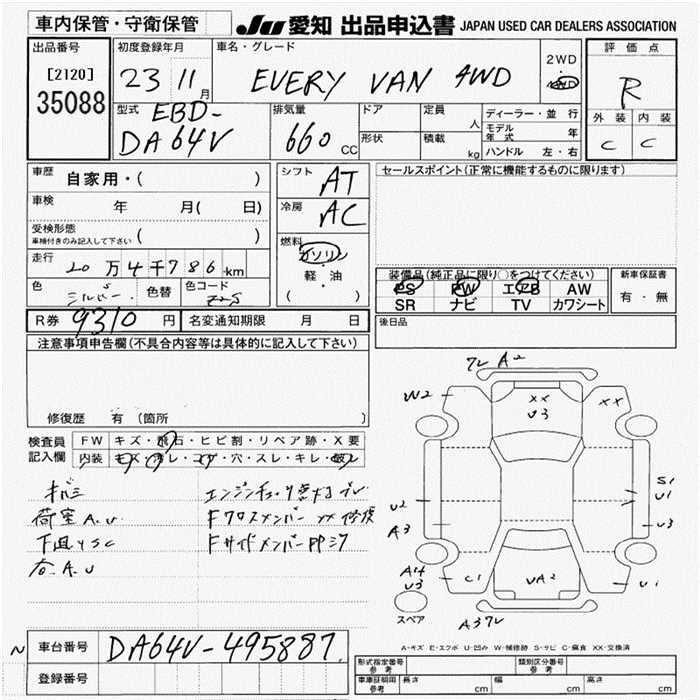 車内保管・守衛保管
JU 愛知 出品申込書 JAPAN USED CAR DEALERS ASSOCIATION
出品番号
[2120]
35088
初度登録年月
23 11月
車名・グレード
EVERY VAN 4WD
2WD
4WD
評価点
R
外装 内装
C C
型式
EBD-
DA64V
排気量
660 CC
ドア
形状
定員 人
積載 kg
ディーラー・並行
モデル年式 年
ハンドル 左・右
車歴 自家用・( )
車検 年 月( 日)
受検形態
車検付きのみ記入して下さい ( )
走行 20万4千786km
色 シルバー. S 色替 色コード Z2S
R券 9310円 名変通知期限 月 日
シフト AT
冷房 AC
燃料
ガソリン
軽・油
( )
セールスポイント(正常に機能するものに限ります)
装備品(純正品に限り○をつけてください)
PS PW エアB AW
SR ナビ TV カワシート
新車保証書
有・無
後日品
注意事項申告欄(不具合内容等は具体的に記入して下さい)
修復歴 有(箇所 )
検査員記入欄
FW キズ・飛石・ヒビ割・リペア跡・X要
内装 キズ・汚レ・コゲ・穴・スレ・キレ・破レ
荷室A.U
エンジンチェック点灯
Fクロスメンバー XX 修復
Fサイドメンバー
A.U
ワレ A2
W2
XX
U3
XX
U2
A3
S1
U1
U3
A14
U3
C1
UA2
U1
A3ワレ
スペア
A-キズ E-エクボ U-凹み W-補修跡 S-サビ C-腐食 XX-交換済
車台番号 DA64V-495887
登録番号
形式指定番号 参考
類別区分番号 参考
車庫証明用 参考 長さ cm 幅 cm 高さ cm